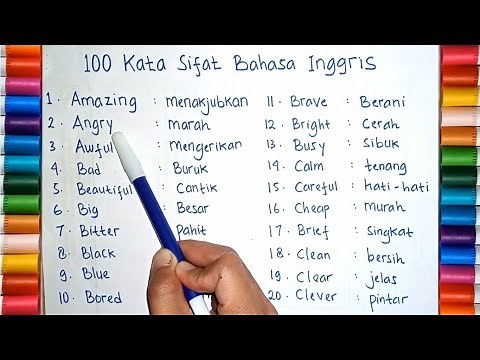 100 Kata Sifat Bahasa Inggris
1. Amazing : menakjubkan
2. Angry : marah
3. Awful : Mengerikan
4. Bad : Buruk
5. Beautiful : Cantik
6. Big : Besar
7. Bitter : pahit
8. Black
9. Blue
10. Bored
11. Brave : Berani
12. Bright : Cerah
13. Busy : sibuk
14. Calm : tenang
15. Careful : hati-hati
16. Cheap : murah
17. Brief : singkat
18. Clean : bersih
19. Clear : jelas
20. Clever : pintar